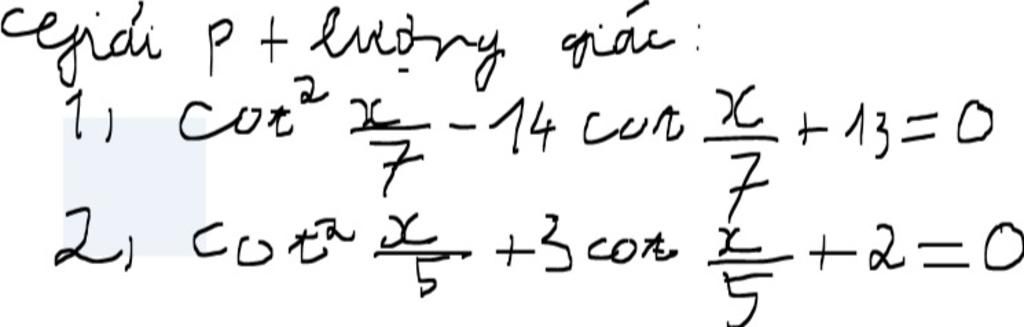 Giải pt lượng giác:
1, cot² x/7 - 14 cot x/7 + 13 = 0
2, cot² x/5 + 3 cot x/5 + 2 = 0